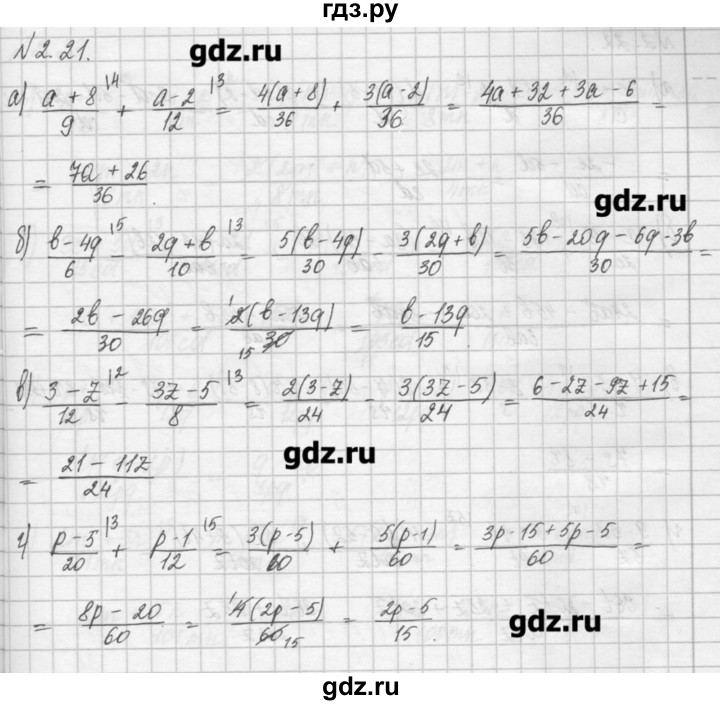 гдз.ру
N 2.21.
gdz.ru
а) (a + 8)/9 |4 + (a - 2)/12 |3 = 4(a + 8)/36 + 3(a - 2)/36 = (4a + 32 + 3a - 6)/36 =
= (7a + 26)/36.
gdz.ru
б) (b - 4q)/6 |5 - (2q + b)/10 |3 = 5(b - 4q)/30 3(2q + b)/30 = (5b - 20q - 6q - 3b)/30 =
= (2b - 26q)/30 = 1 2(b - 13q)/15 30 = (b - 13q)/15.
в) (3 - z)/12 |2 - (3z - 5)/8 |3 = 2(3 - z)/24 - 3(3z - 5)/24 = (6 - 2z - 9z + 15)/24 =
gdz.ru
= (21 - 11z)/24
г) (p - 5)/20 |3 + (p - 1)/12 |5 = 3(p - 5)/60 + 5(p - 1)/60 = (3p - 15 + 5p - 5)/60 =
= (8p - 20)/60 = 1 4(2p - 5)/60 15 = (2p - 5)/15.
gdz.ru
gdz.ru